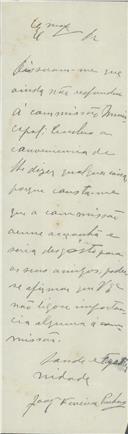 Exmo
Sr
Disseram-me que
ainda não respondeu
á commissão Munici
pal. Lembro a
conveniencia de
lhe dizer qualquer coisa
porque consta-me
que a commissão
reune ámanhã e
seria desgosto para
os seus amigos, poder
se afirmar que V. Ex.ª
não ligou importan
cia alguma á com
missão.
Saude e Frater
nidade
José Pereira